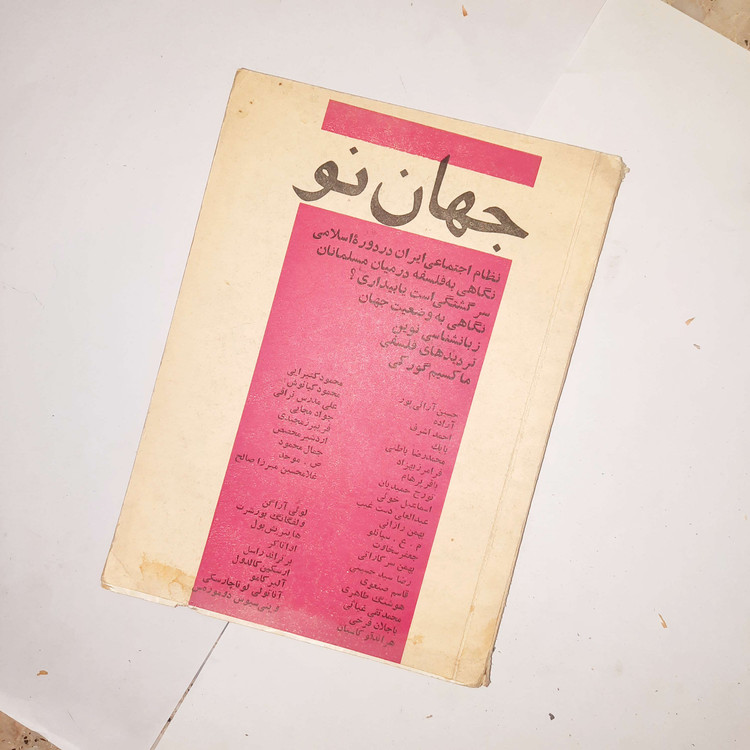 جهان نو
نظام اجتماعی ایران در دورهٔ اسلامی
نگاهی به فلسفه در میان مسلمانان
سرگشتگی است یا بیداری؟
نگاهی به وضعیت جهان
زبانشناسی نوین
تردیدهای فلسفی
ماکسیم گورکی
حسین آراتی‌پور
آزاده
احمد اشرف
بابک
محمدرضا باطنی
فرامرز بهزاد
باقر پرهام
تورج حمیدیان
اسماعیل خوئی
عبدالعلی دست غیب
بهمن رازانی
م . ع . سپانلو
جعفر سخاوت
بهمن سرکاراتی
رضا سید حسینی
قاسم صنعوی
هوشنگ طاهری
محمدتقی غیاثی
باجلان فرخی
هراند قوکاسیان
محمود کتیرایی
محمود کیانوش
علی مدرس نراقی
جواد مجابی
فریبرز مجیدی
اردشیر محصص
جمال محمود
ص . موحد
غلامحسین میرزا صالح
لوئی آراگن
ولفگانگ بورشرت
هاینریش بول
برتراند راسل
ارسکین کالدول
آلبر کامو
آناتولی لوناچارسکی